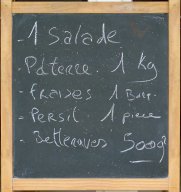 1 Salade
- Patate. 1 kg
- fraises 1 Barq.
- Persil. 1 piece
- Betteraves 500g